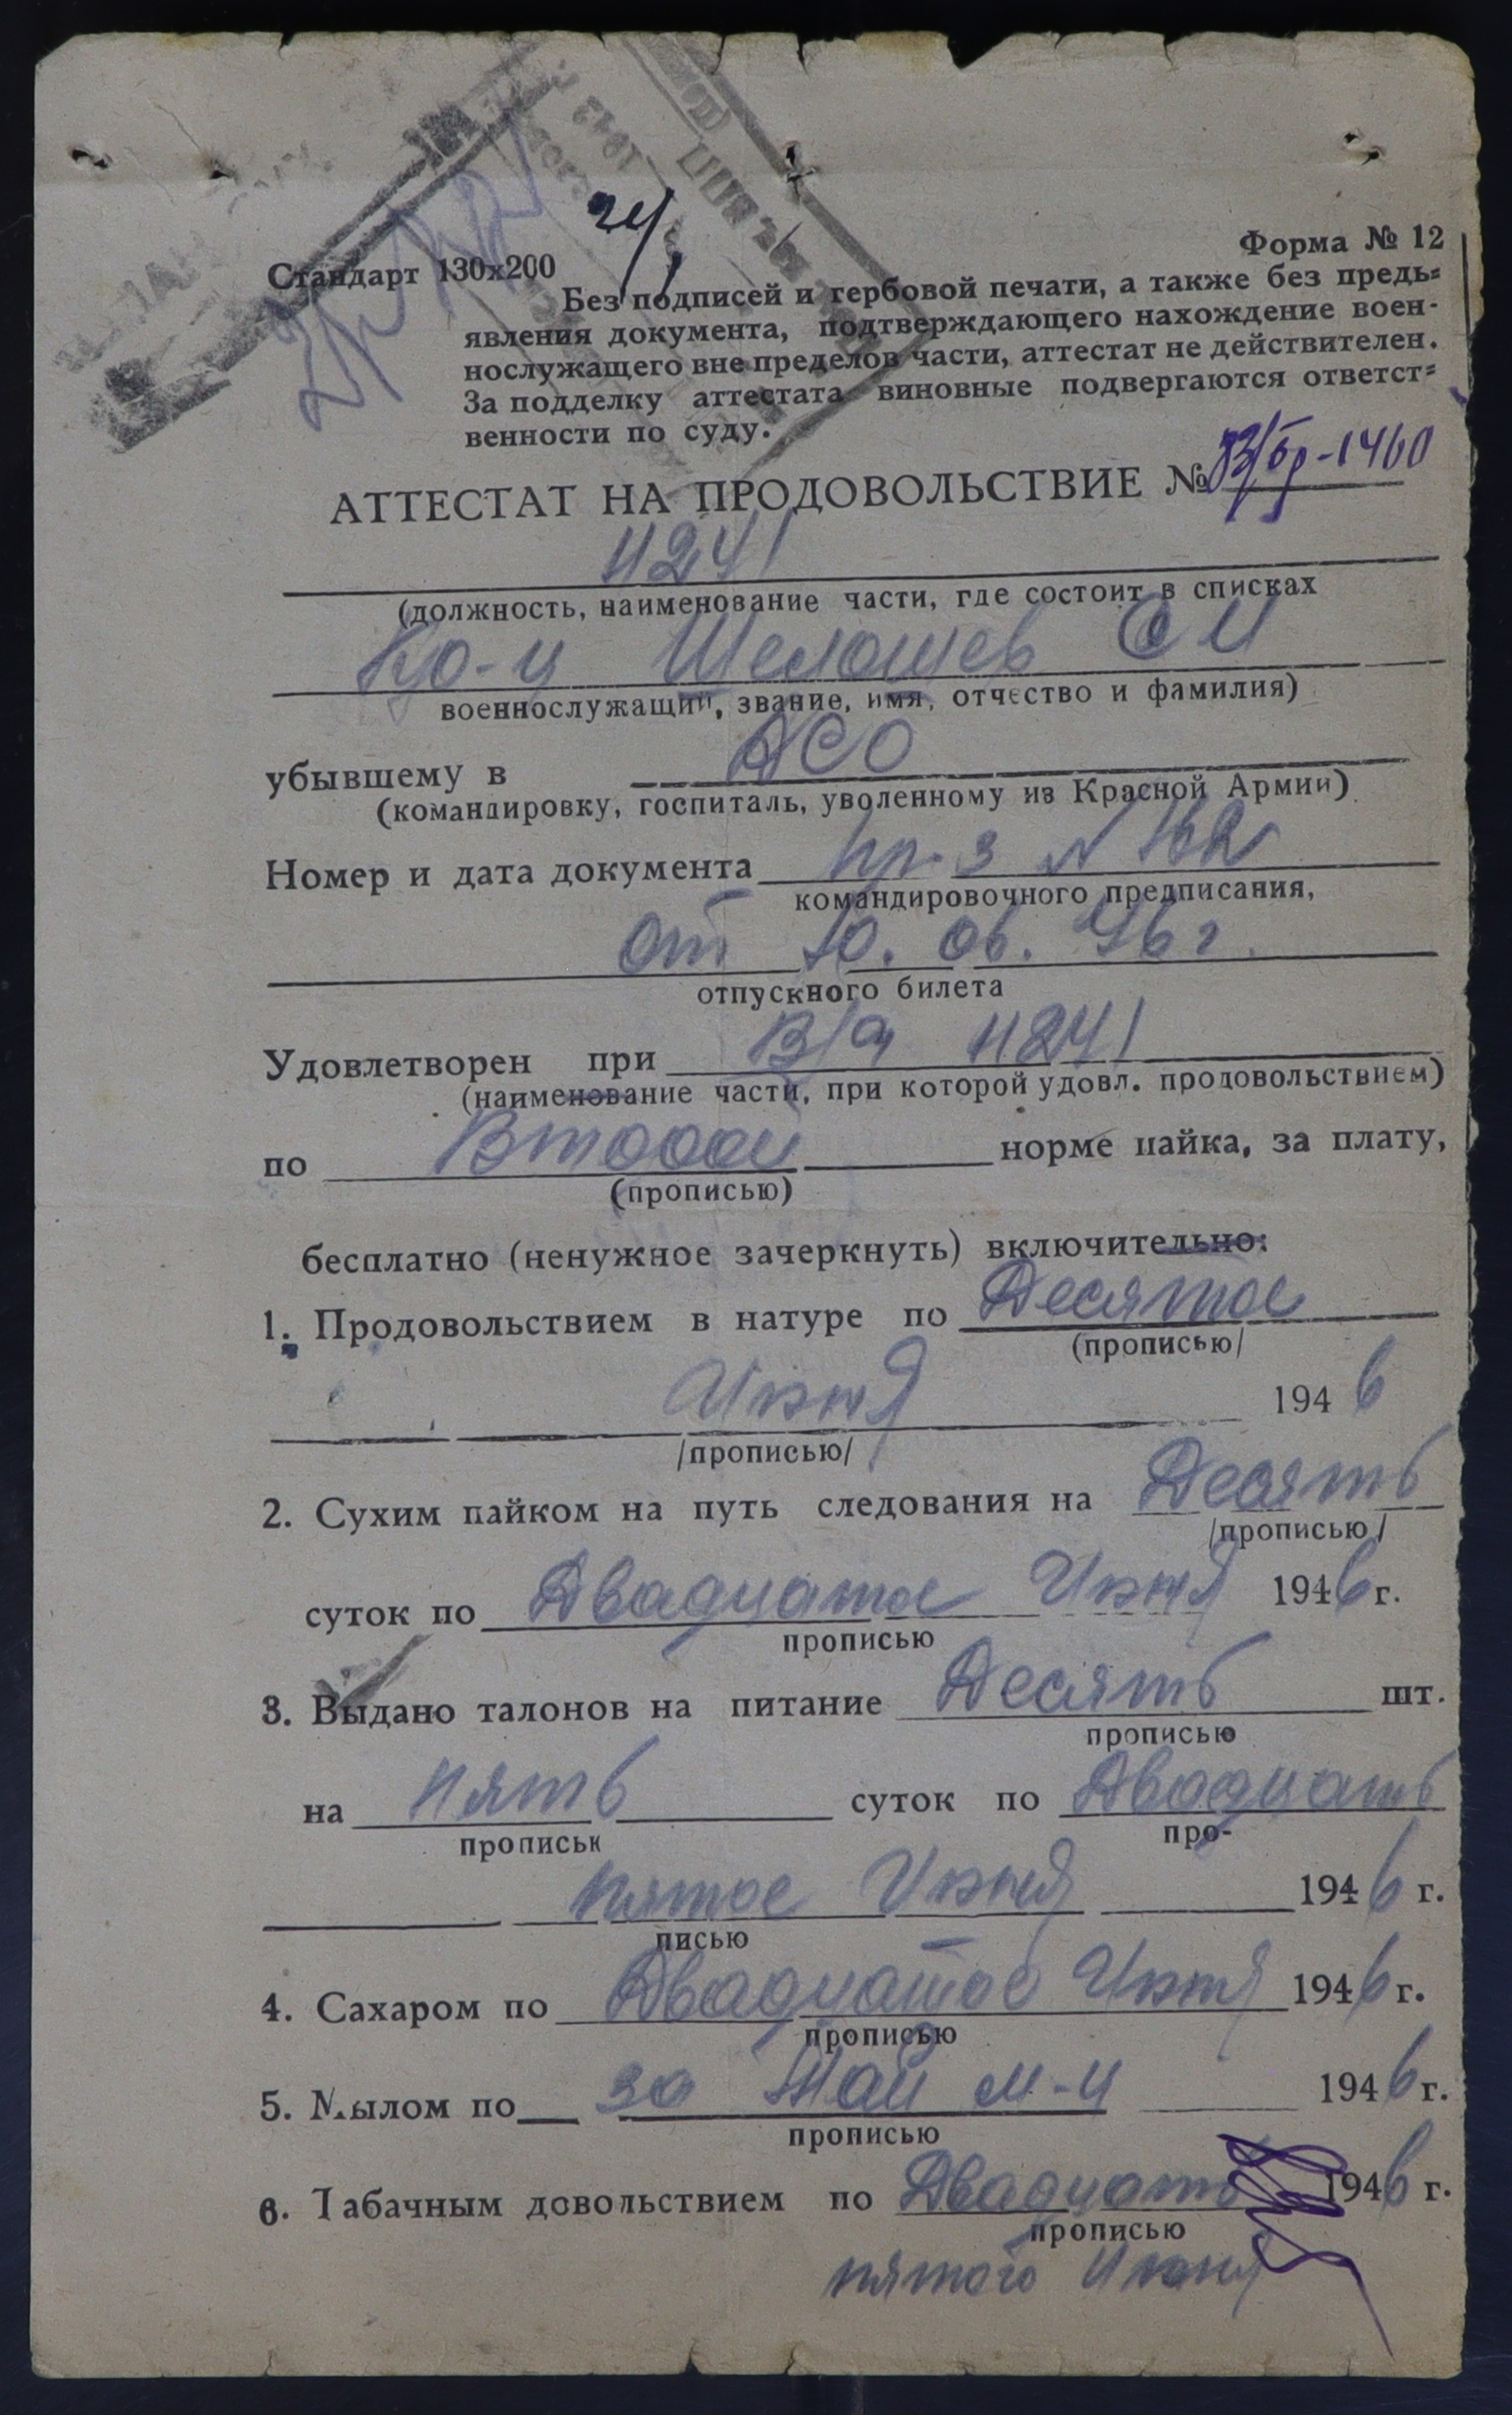 Стандарт 130х200
Форма № 12
Без подписей и гербовой печати, а также без предъ=
явления документа, подтверждающего нахождение воен-
нослужащего вне пределов части, аттестат не действителен.
За подделку аттестата виновные подвергаются ответст=
венности по суду.
АТТЕСТАТ НА ПРОДОВОЛЬСТВИЕ №
(должность, наименование части, где состоит в списках
Шелошев С И
военнослужащий, звание, имя, отчество и фамилия)
убывшему в
(командировку, госпиталь, уволенному из Красной Армии)
Номер и дата документа пр-з №
командировочного предписания,
от 10. 06. 46 г.
отпускного билета
Удовлетворен при В/Ч 11241
(наименование части, при которой удовл. продовольствием)
по Второй норме пайка, за плату,
(прописью)
бесплатно (ненужное зачеркнуть) включительно:
1. Продовольствием в натуре по Десятое
(прописью/
Июня 1946
/прописью/
2. Сухим пайком на путь следования на Десять
/прописью/
суток по Двадцатое Июня 1946 г.
прописью
3. Выдано талонов на питание Десять шт.
прописью
на пять суток по Двадцать
прописьк про-
пятое Июня 1946 г.
писью
4. Сахаром по Двадцатое Июня 1946 г.
прописью
5. Мылом по за Май м-ц 1946 г.
прописью
6. Табачным довольствием по Двадцать 1946 г.
прописью
пятого Июня